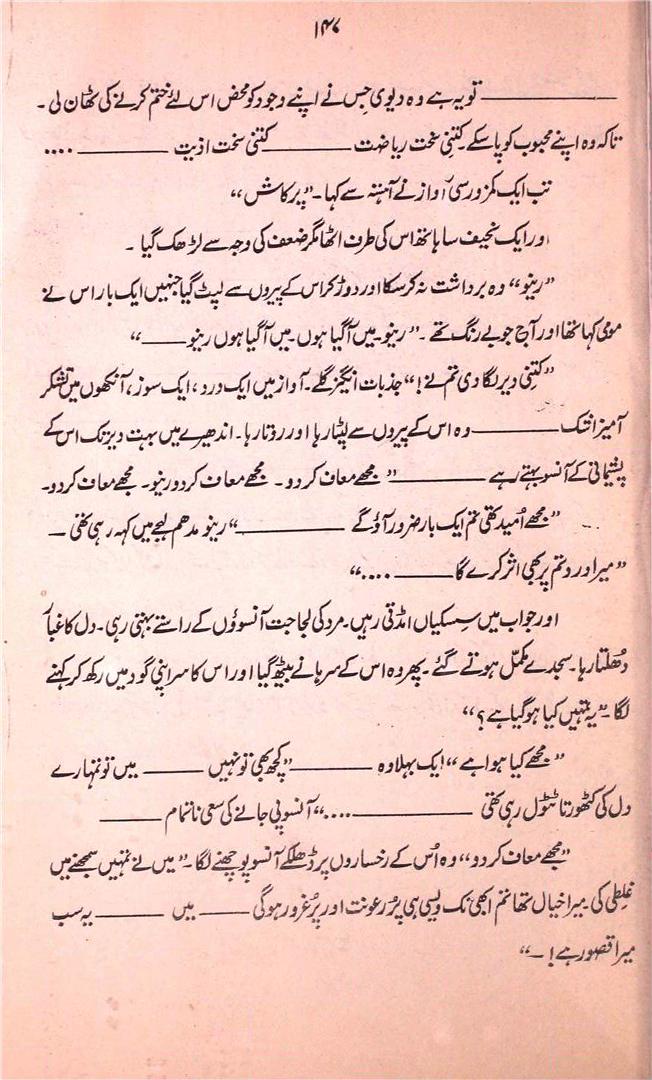 ۱۴۷
———— تو یہ ہے وہ دیوی جس نے اپنے وجود کو محض اس لئے ختم کرنے کی ٹھان لی۔
تاکہ وہ اپنے محبوب کو پا سکے۔ کتنی سخت ریاضت ———— کتنی سخت اذیت ———— ....
تب ایک کمزور سی آواز نے آہستہ سے کہا۔ ”پرکاش“
اور ایک نحیف سا ہاتھ اس کی طرف اٹھا مگر ضعف کی وجہ سے لڑھک گیا ۔
”رینو“ وہ برداشت نہ کر سکا اور دوڑ کر اس کے پیروں سے لپٹ گیا جنہیں ایک بار اس نے
مومی کہا تھا اور آج جو بے رنگ تھے۔ ”رینو۔ میں آگیا ہوں۔ میں آگیا ہوں رینو ——“
”کتنی دیر لگا دی تم نے!“ جذبات انگیز گلے۔ آواز میں ایک درد، ایک سوز، آنکھوں میں تشکر
آمیز اشک ———— وہ اس کے پیروں سے لپٹا رہا اور روتا رہا۔ اندھیرے میں بہت دیر تک اس کے
پشیمانی کے آنسو بہتے رہے ———— ” مجھے معاف کر دو۔ مجھے معاف کر دو رینو۔ مجھے معاف کر دو۔
”مجھے اُمید تھی تم ایک بار ضرور آؤ گے ————“ رینو مدھم لہجے میں کہہ رہی تھی —
”میرا درد تم پر بھی اثر کرے گا ———— ....“
اور جواب میں سسکیاں امڈتی رہیں۔ مرد کی لجاجت آنسوؤں کے راستے بہتی رہی۔ دل کا غبار
دُھلتا رہا۔ سجدے مکمل ہوتے گئے۔ پھر وہ اس کے سرہانے بیٹھ گیا اور اس کا سر اپنی گود میں رکھ کر کہنے
لگا۔ ”یہ تمہیں کیا ہو گیا ہے؟“
”مجھے کیا ہوا ہے“ ایک بہلاوہ ———— ”کچھ بھی تو نہیں ——— میں تو تمہارے
دل کی کٹھورتا ٹٹول رہی تھی ————....“ آنسو پی جانے کی سعی ناتمام ————
”مجھے معاف کر دو“ وہ اُس کے رخساروں پر ڈھلکے آنسو پوچھنے لگا۔ ”میں نے تمہیں سمجھنے میں
غلطی کی۔ میرا خیال تھا تم ابھی تک ویسی ہی پُر رعونت اور پُر غرور ہو گی —— میں ———— یہ سب
میرا قصور ہے! —“